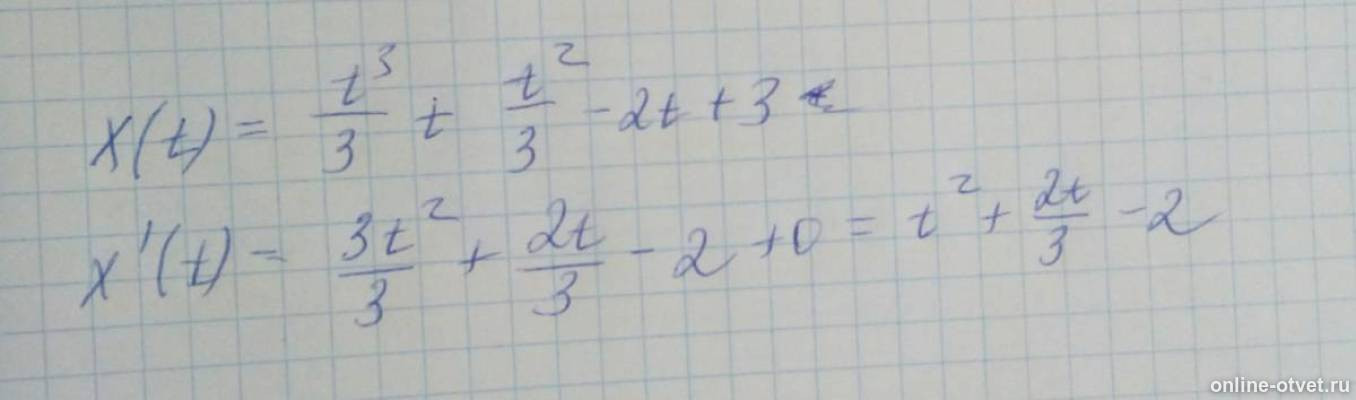 x(t) = t³/3 + t²/3 - 2t + 3
x'(t) = 3t²/3 + 2t/3 - 2 + 0 = t² + 2t/3 - 2
online-otvet.ru